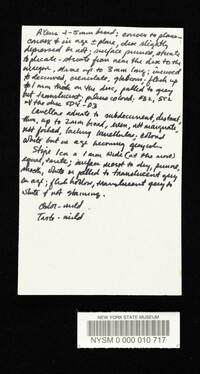 Pileus 2-5 mm broad; convex to plano-
convex in age ± plane, disc slightly
depressed or not; surface pruinose, striate
to plicate-striate from near the disc to the
margin, striae up to 3 mm long; incurved
to decurved, crenulate, glabrous, flesh up
to 1 mm thick on the disc, pallid to gray
but translucent, pileus colored
w/ the disc 5D4-D3
Lamellae adnate to subdecurrent, distant,
thin, up to 2 mm broad, even, not marginate
not forked, lacking lamellulae, colored
white but in age becoming grayish.
Stipe 1 cm x 1 mm wide (at the apex)
equal, terete; surface moist to dry, pruinose,
smooth, white or pallid to translucent gray
in age; flesh hollow, translucent gray to
white & not staining.
Odor - mild
Taste - mild
NEW YORK STATE MUSEUM
NYSM 0 000 010 717